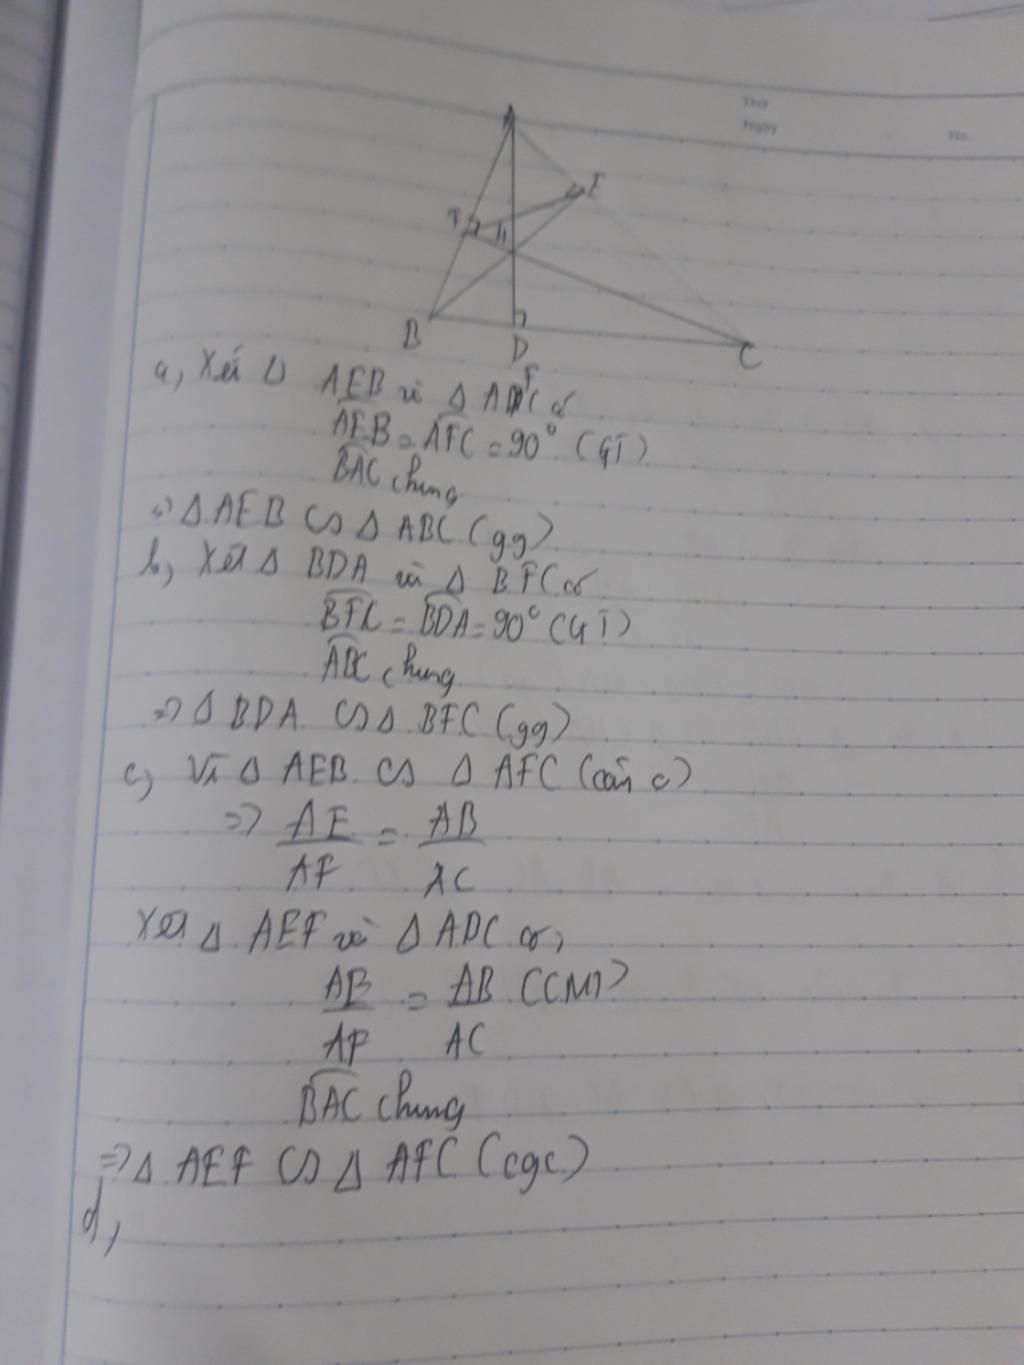 Thứ
Ngày No.
A
E
F H
B D C
a, Xét Δ AEB và Δ AFC có
AEB = AFC = 90° (GT)
BAC chung
=> Δ AEB ᔕ Δ ABC (gg)
b, Xét Δ BDA và Δ BFC có
BFC = BDA = 90° (GT)
ABC chung
=> Δ BDA ᔕ Δ BFC (gg)
c, Vì Δ AEB ᔕ Δ AFC (câu)
=> AE/AF = AB/AC
Xét Δ AEF và Δ ADC có,
AB/AF = AB/AC (CMT)
BAC chung
=> Δ AEF ᔕ Δ AFC (cgc)
d,